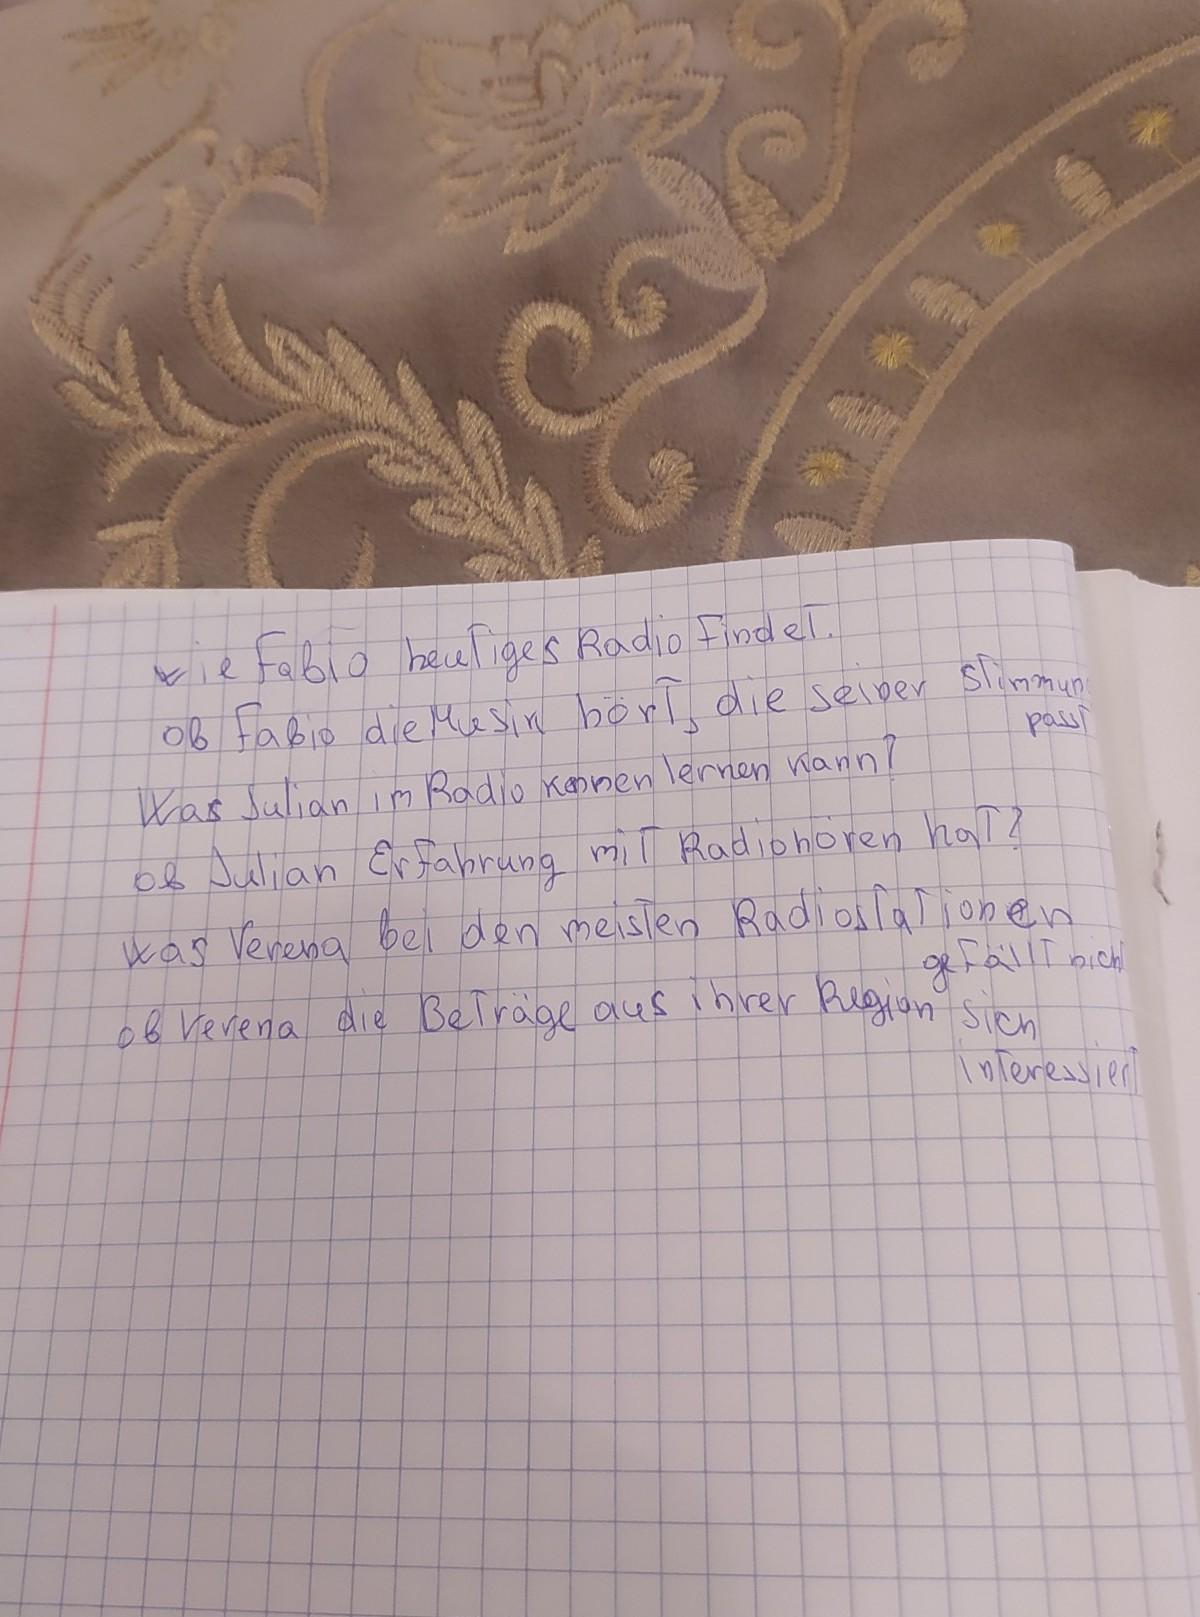 wie Fabio heutiges Radio findet.
ob Fabio die Musik hört, die seiner Stimmun
passt
Was Julian im Radio kennen lernen kann?
ob Julian Erfahrung mit Radiohören hat?
was Verena bei den meisten Radiostationen
gefällt nich
ob Verena die Beträge aus ihrer Region sich
interessiert